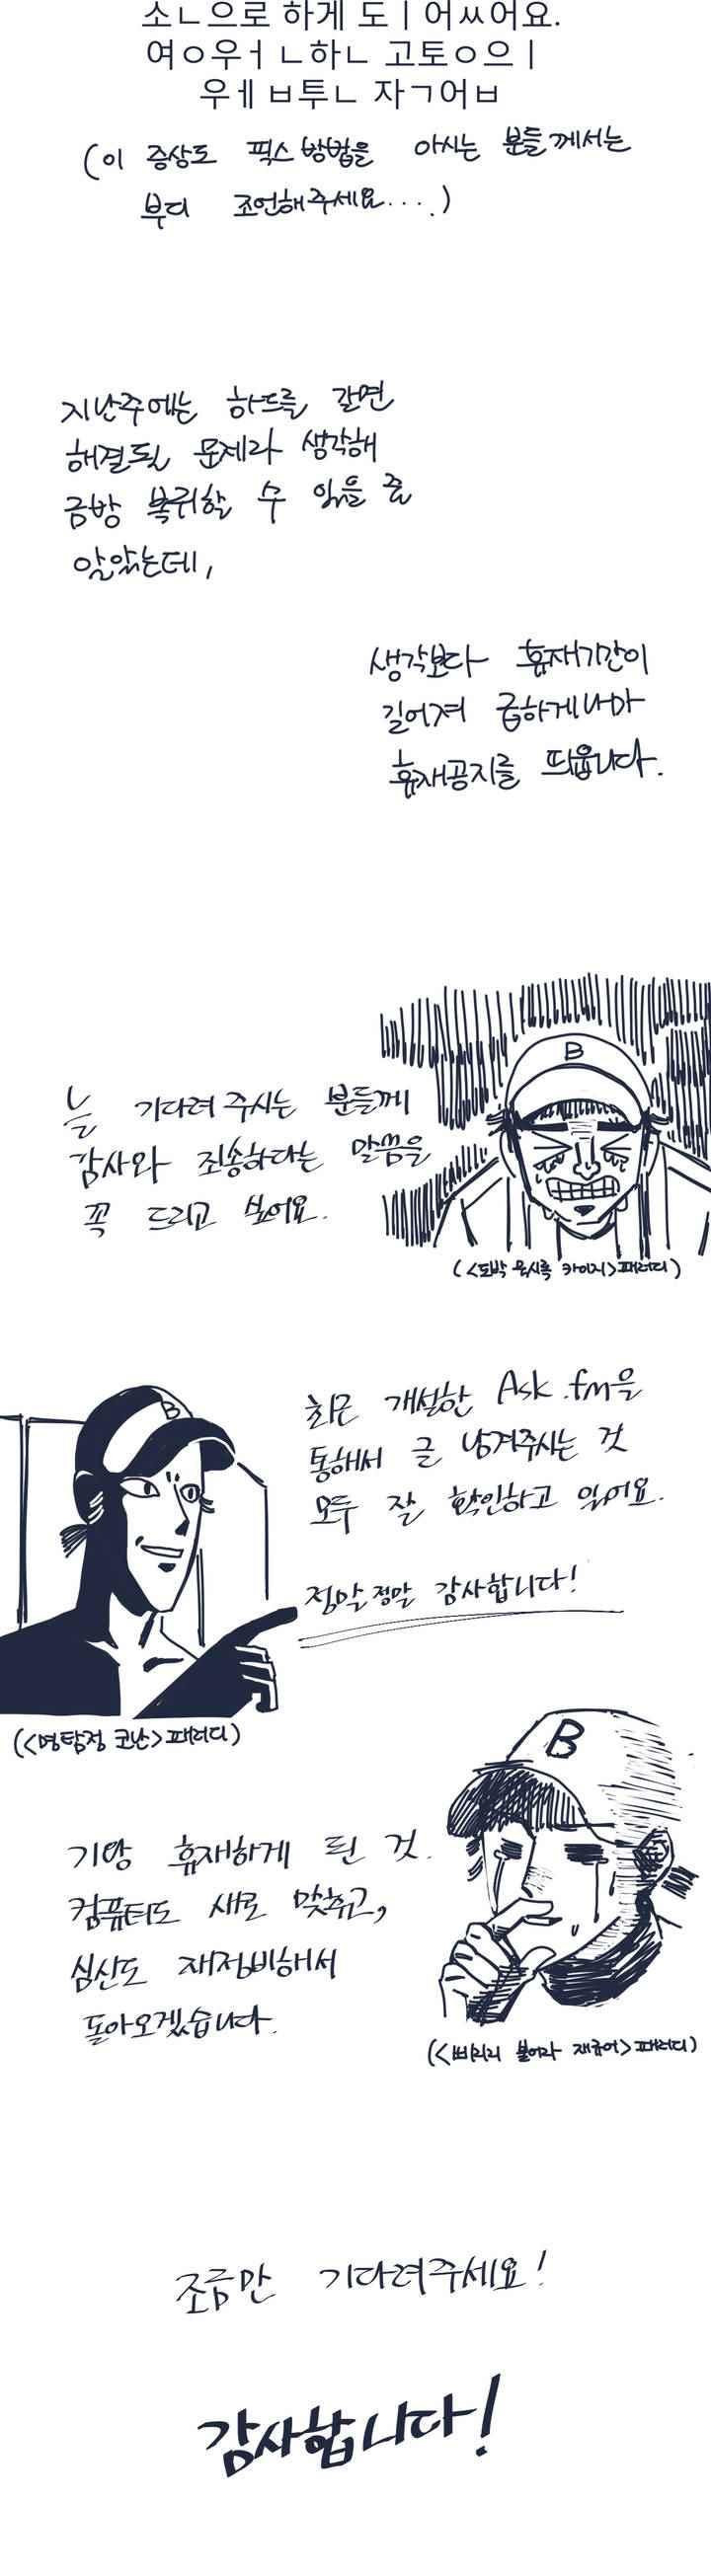 소ㄴ으로 하게 도ㅣ어ㅆ어요.
여ㅇ우ㅓㄴ하ㄴ 고토ㅇ으ㅣ
우ㅔㅂ투ㄴ 자ㄱ어ㅂ
(이 증상도 픽스 방법을 아시는 분들께서는
부디 조언해주세요....)
지난주에는 하드를 갈면
해결될 문제라 생각해
금방 복귀할 수 있을 줄
알았는데,
생각보다 휴재기간이
길어져 급하게나마
휴재공지를 띄웁니다.
B
늘 기다려 주시는 분들께
감사와 죄송하다는 말씀을
꼭 드리고 싶어요.
(<도박 묵시록 카이지>패러디)
B
최근 개설한 Ask.fm을
통해서 글 남겨주시는 것
모두 잘 확인하고 있어요.
정말정말 감사합니다!
(<명탐정 코난>패러디)
B
기왕 휴재하게 된 것.
컴퓨터도 새로 맞추고,
심신도 재정비해서
돌아오겠습니다.
(<삐리리 불어라 재규어>패러디)
조금만 기다려주세요!
감사합니다!